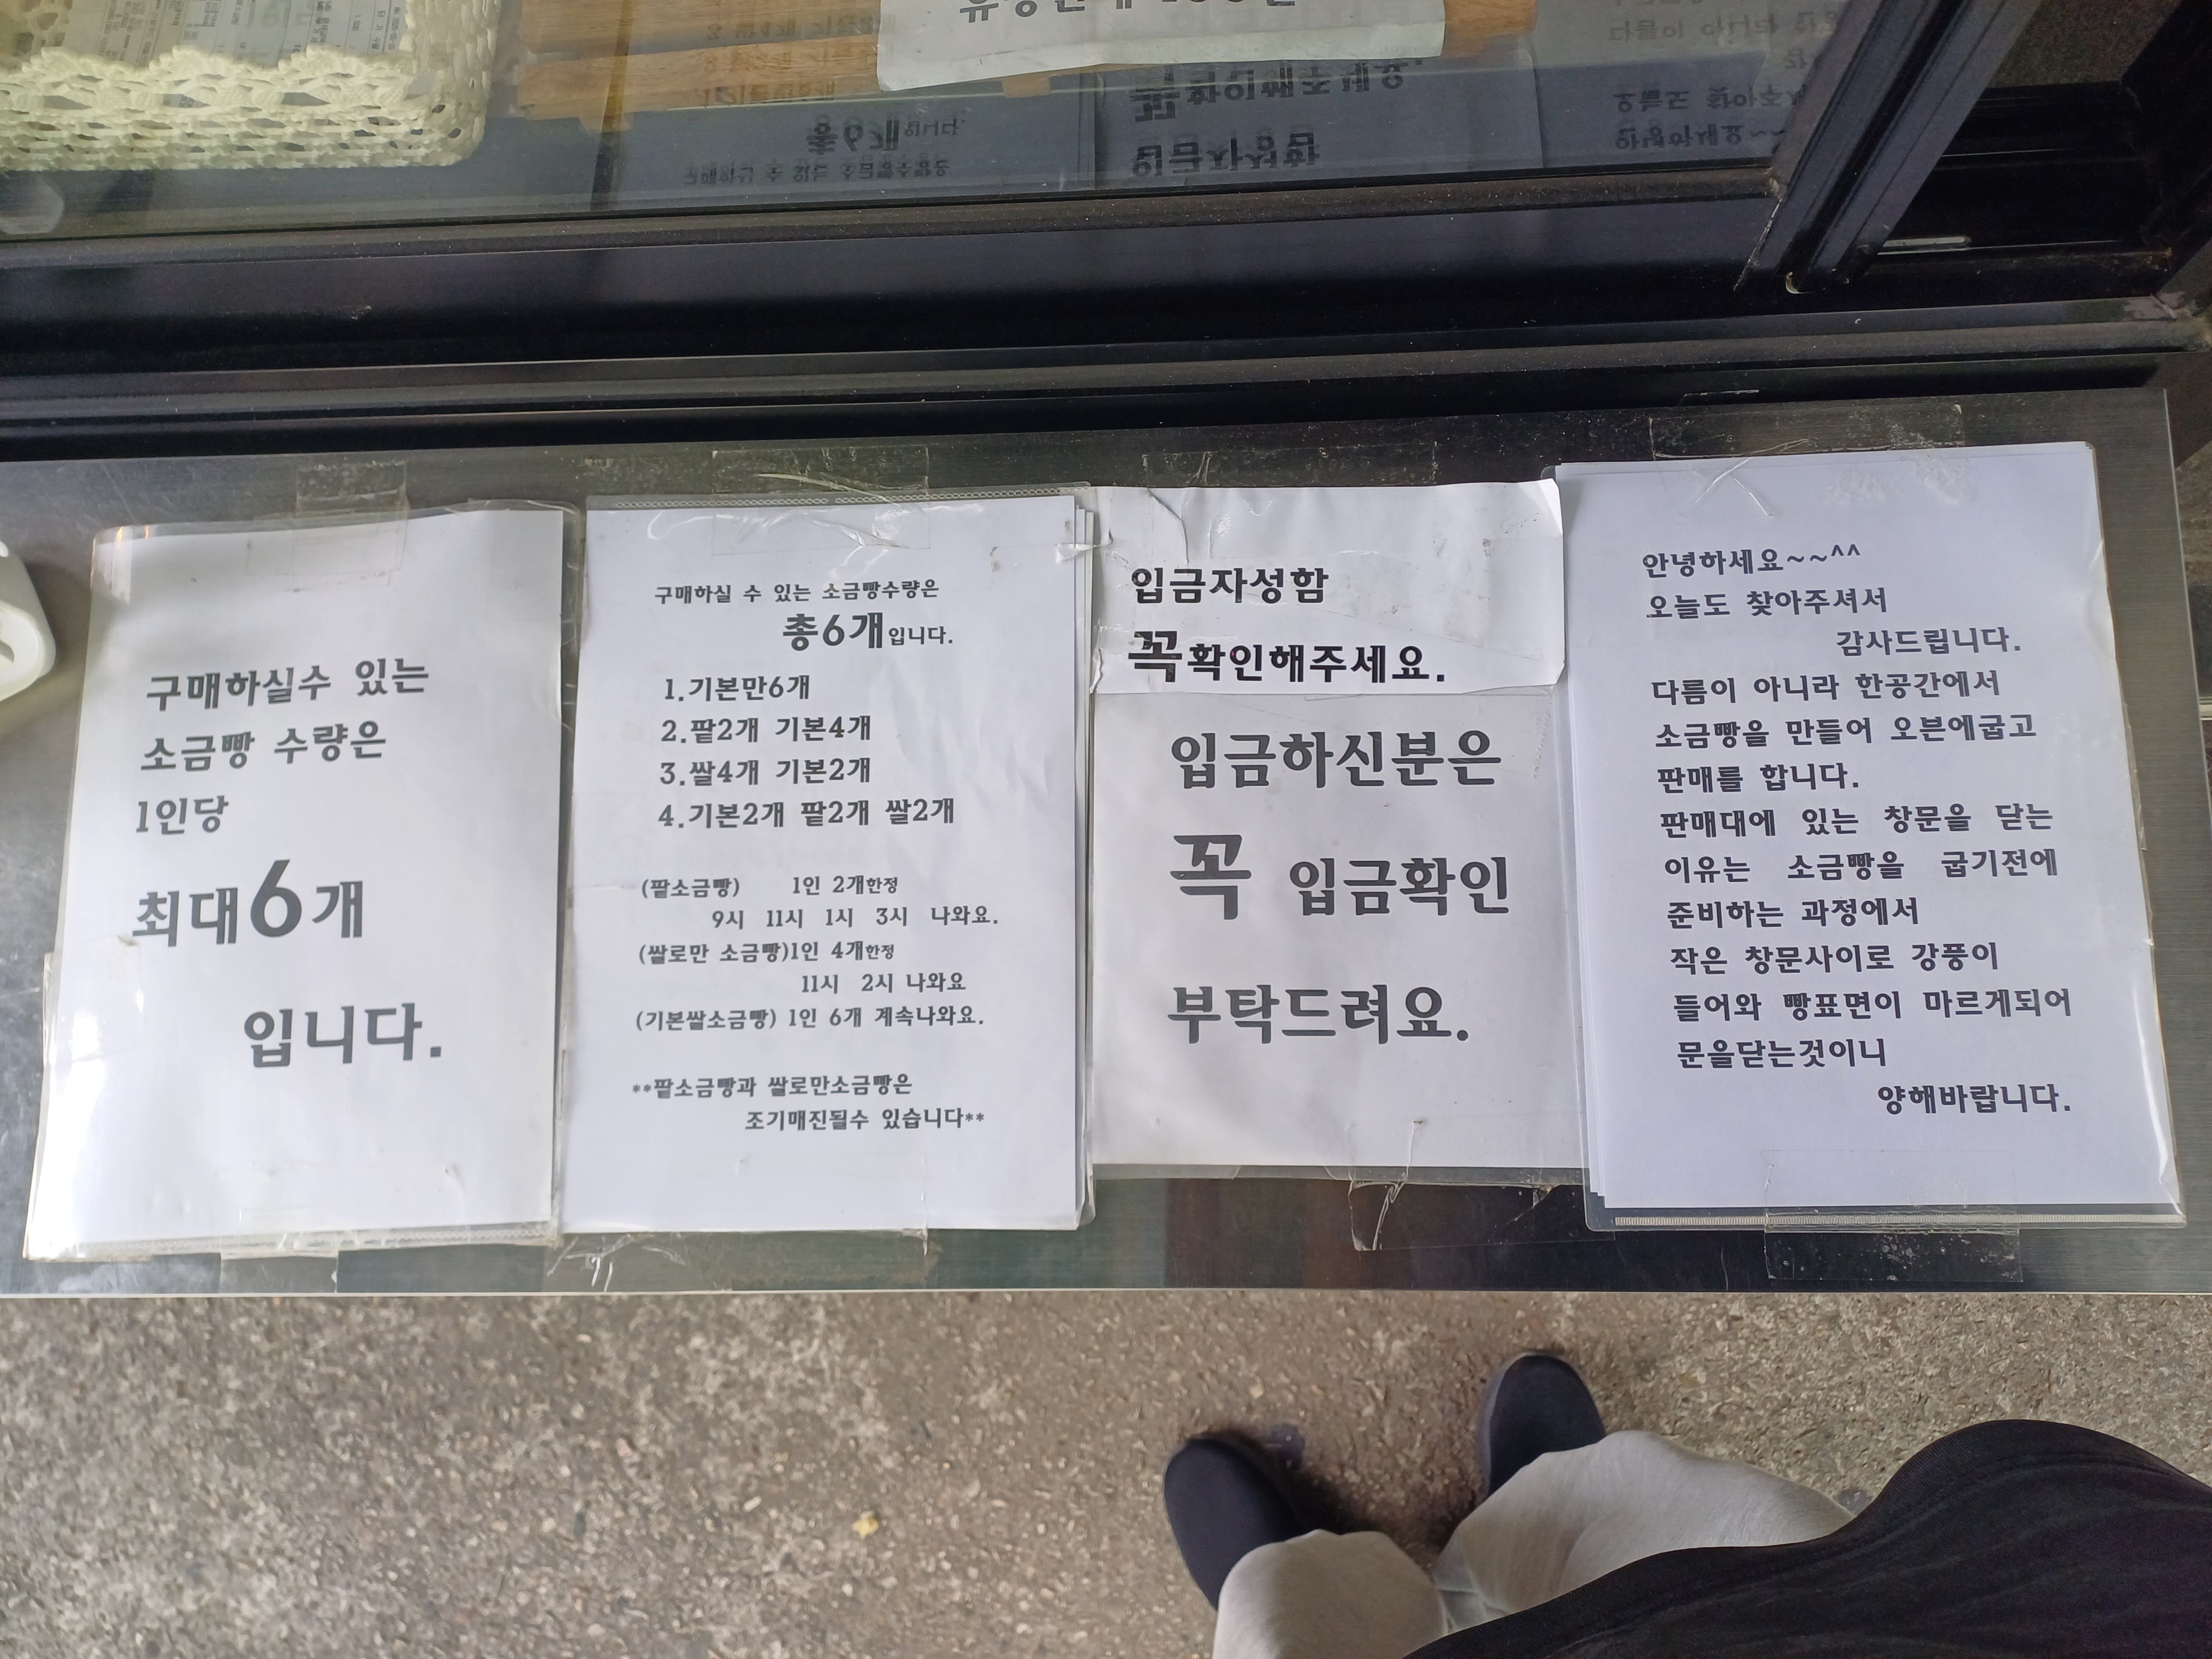 구매하실수 있는
소금빵 수량은
1인당
최대6개
입니다.
구매하실 수 있는 소금빵수량은
총6개입니다.
1.기본만6개
2.팥2개 기본4개
3.쌀4개 기본2개
4.기본2개 팥2개 쌀2개
(팥소금빵) 1인 2개한정
9시 11시 1시 3시 나와요.
(쌀로만 소금빵)1인 4개한정
11시 2시 나와요
(기본쌀소금빵) 1인 6개 계속나와요.
**팥소금빵과 쌀로만소금빵은
조기매진될수 있습니다**
입금자성함
꼭확인해주세요.
입금하신분은
꼭 입금확인
부탁드려요.
안녕하세요~~^^
오늘도 찾아주셔서
감사드립니다.
다름이 아니라 한공간에서
소금빵을 만들어 오븐에굽고
판매를 합니다.
판매대에 있는 창문을 닫는
이유는 소금빵을 굽기전에
준비하는 과정에서
작은 창문사이로 강풍이
들어와 빵표면이 마르게되어
문을닫는것이니
양해바랍니다.